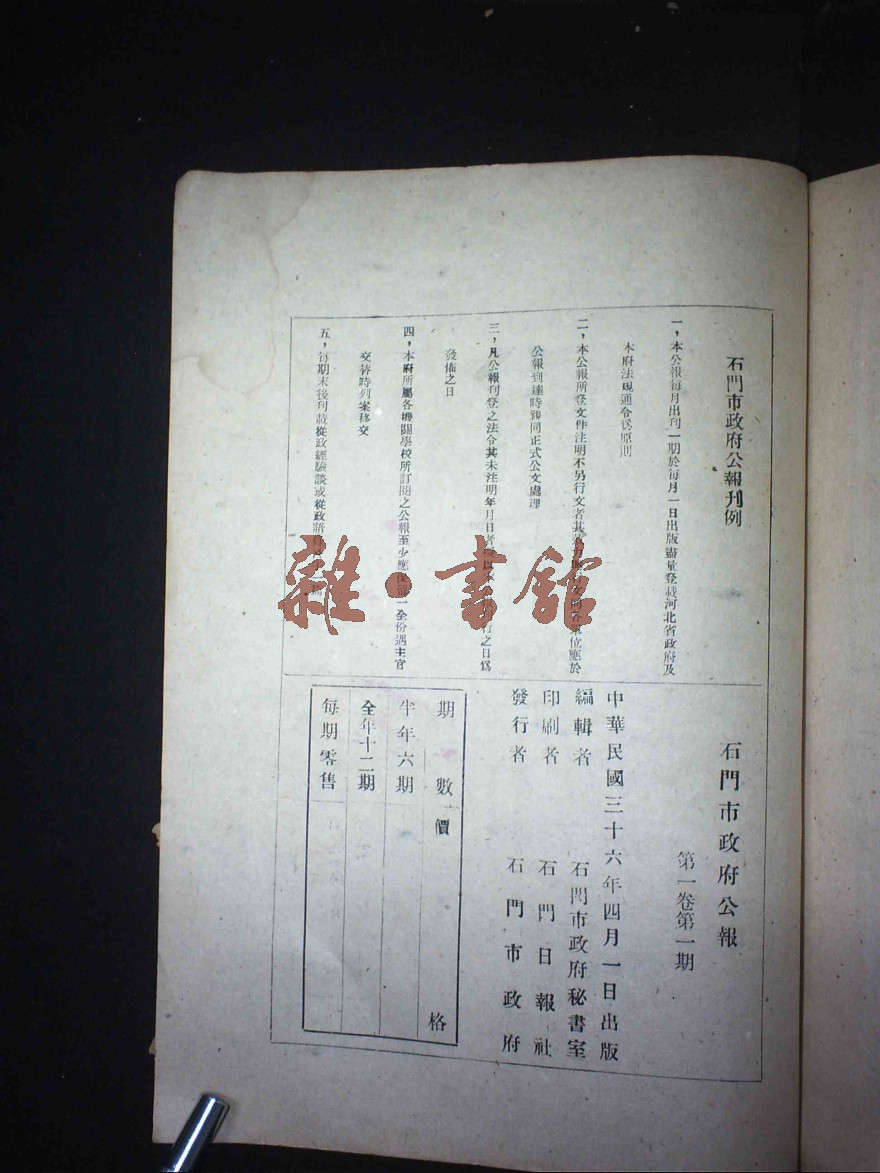 石門市政府公報刋例
一，本公報每月出刊一期於每月一日出版盡量登載河北省政府及
本府法規通令爲原則
二，本公報所登文件注明不另行文者其 單位應於
公報到達時視同正式公文處理
三，凡公報刊登之法令其未注明年月日者 行之日爲
發佈之日
四，本府所屬各機關學校所訂閱之公報至少應保留一全份遇主官
交替時列案移交
五，每期末後刊載從政經驗談或從政
石門市政府公報
第一卷第一期
中華民國三十六年四月一日出版
編輯者 石門市政府秘書室
印刷者 石門日報社
發行者 石門市政府
期數 價格
半年六期
全年十二期
每期零售
雜·書館